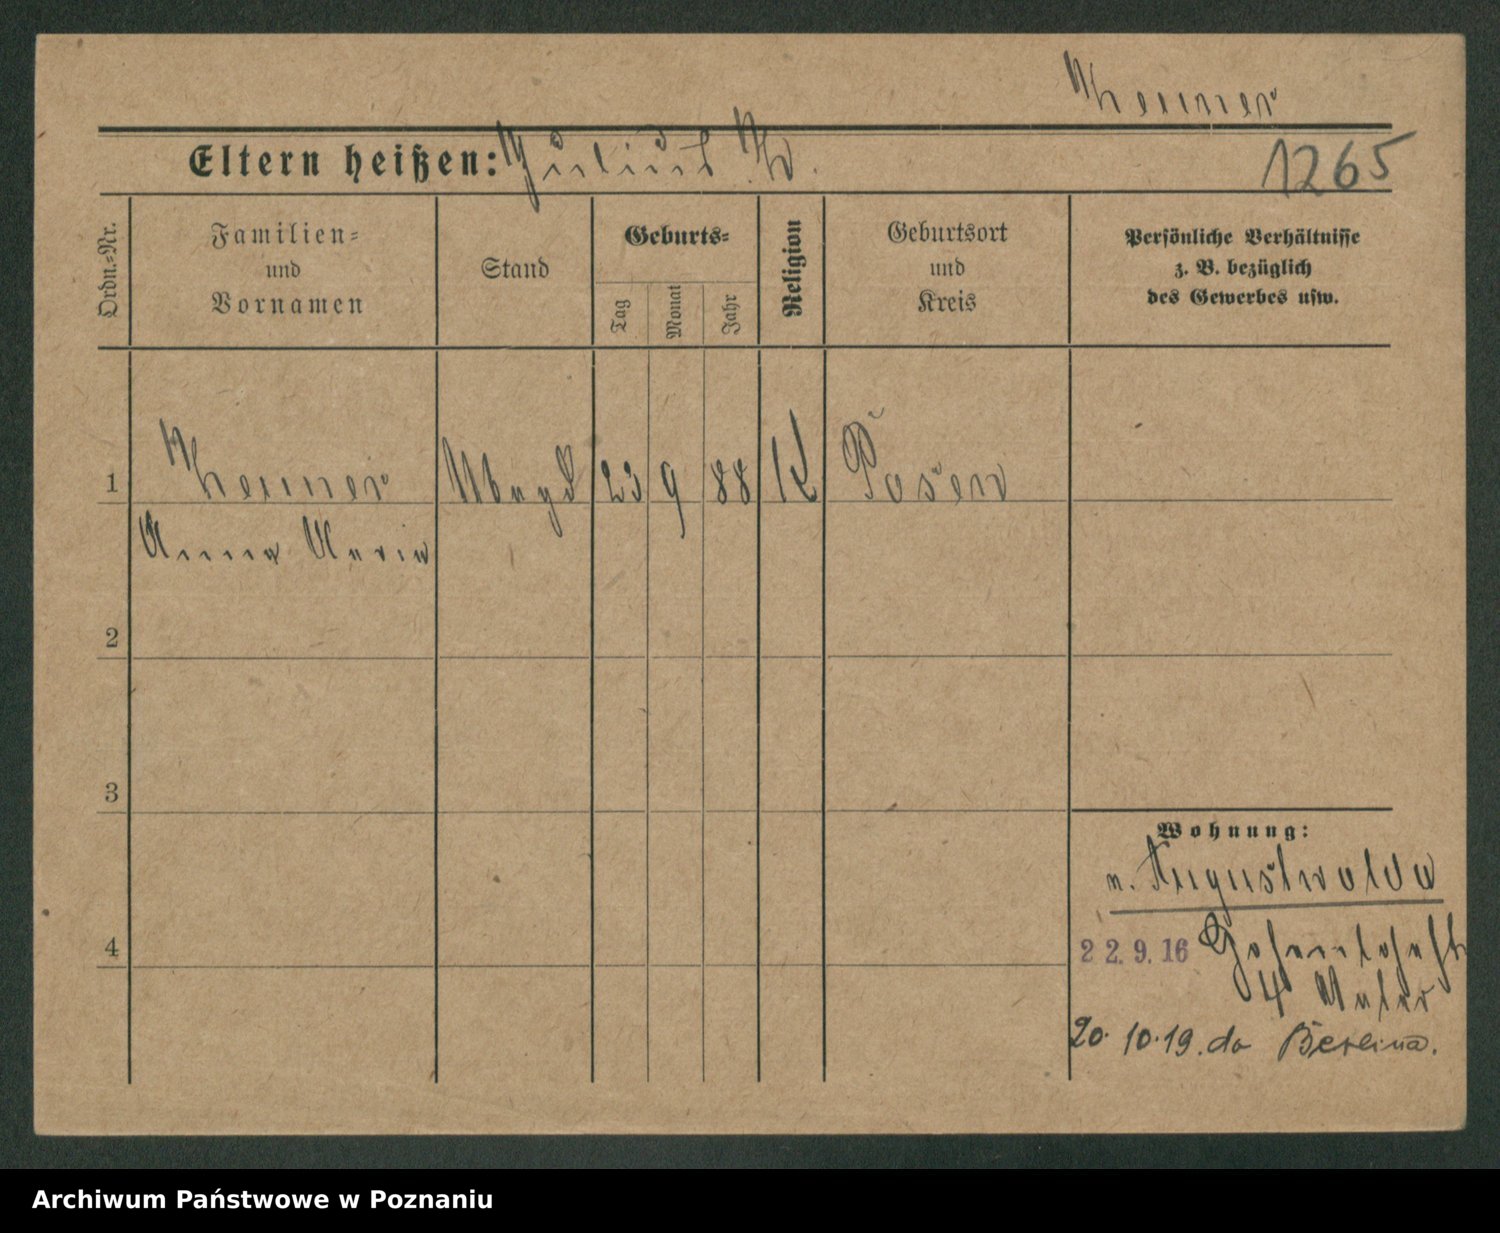 1265
Eltern heißen: Julius
Ordn.-Nr.
Familien-
und
Vornamen
Stand
Geburts-
Tag
Monat
Jahr
Religion
Geburtsort
und
Kreis
Persönliche Verhältnisse
z. B. bezüglich
des Gewerbes usw.
1
Magd 23 9 88 K Posen
Anna Maria
2
3
4
Wohnung:
n. Augustwalde
22.9.16
20.10.19. do Berlina.
Archiwum Państwowe w Poznaniu